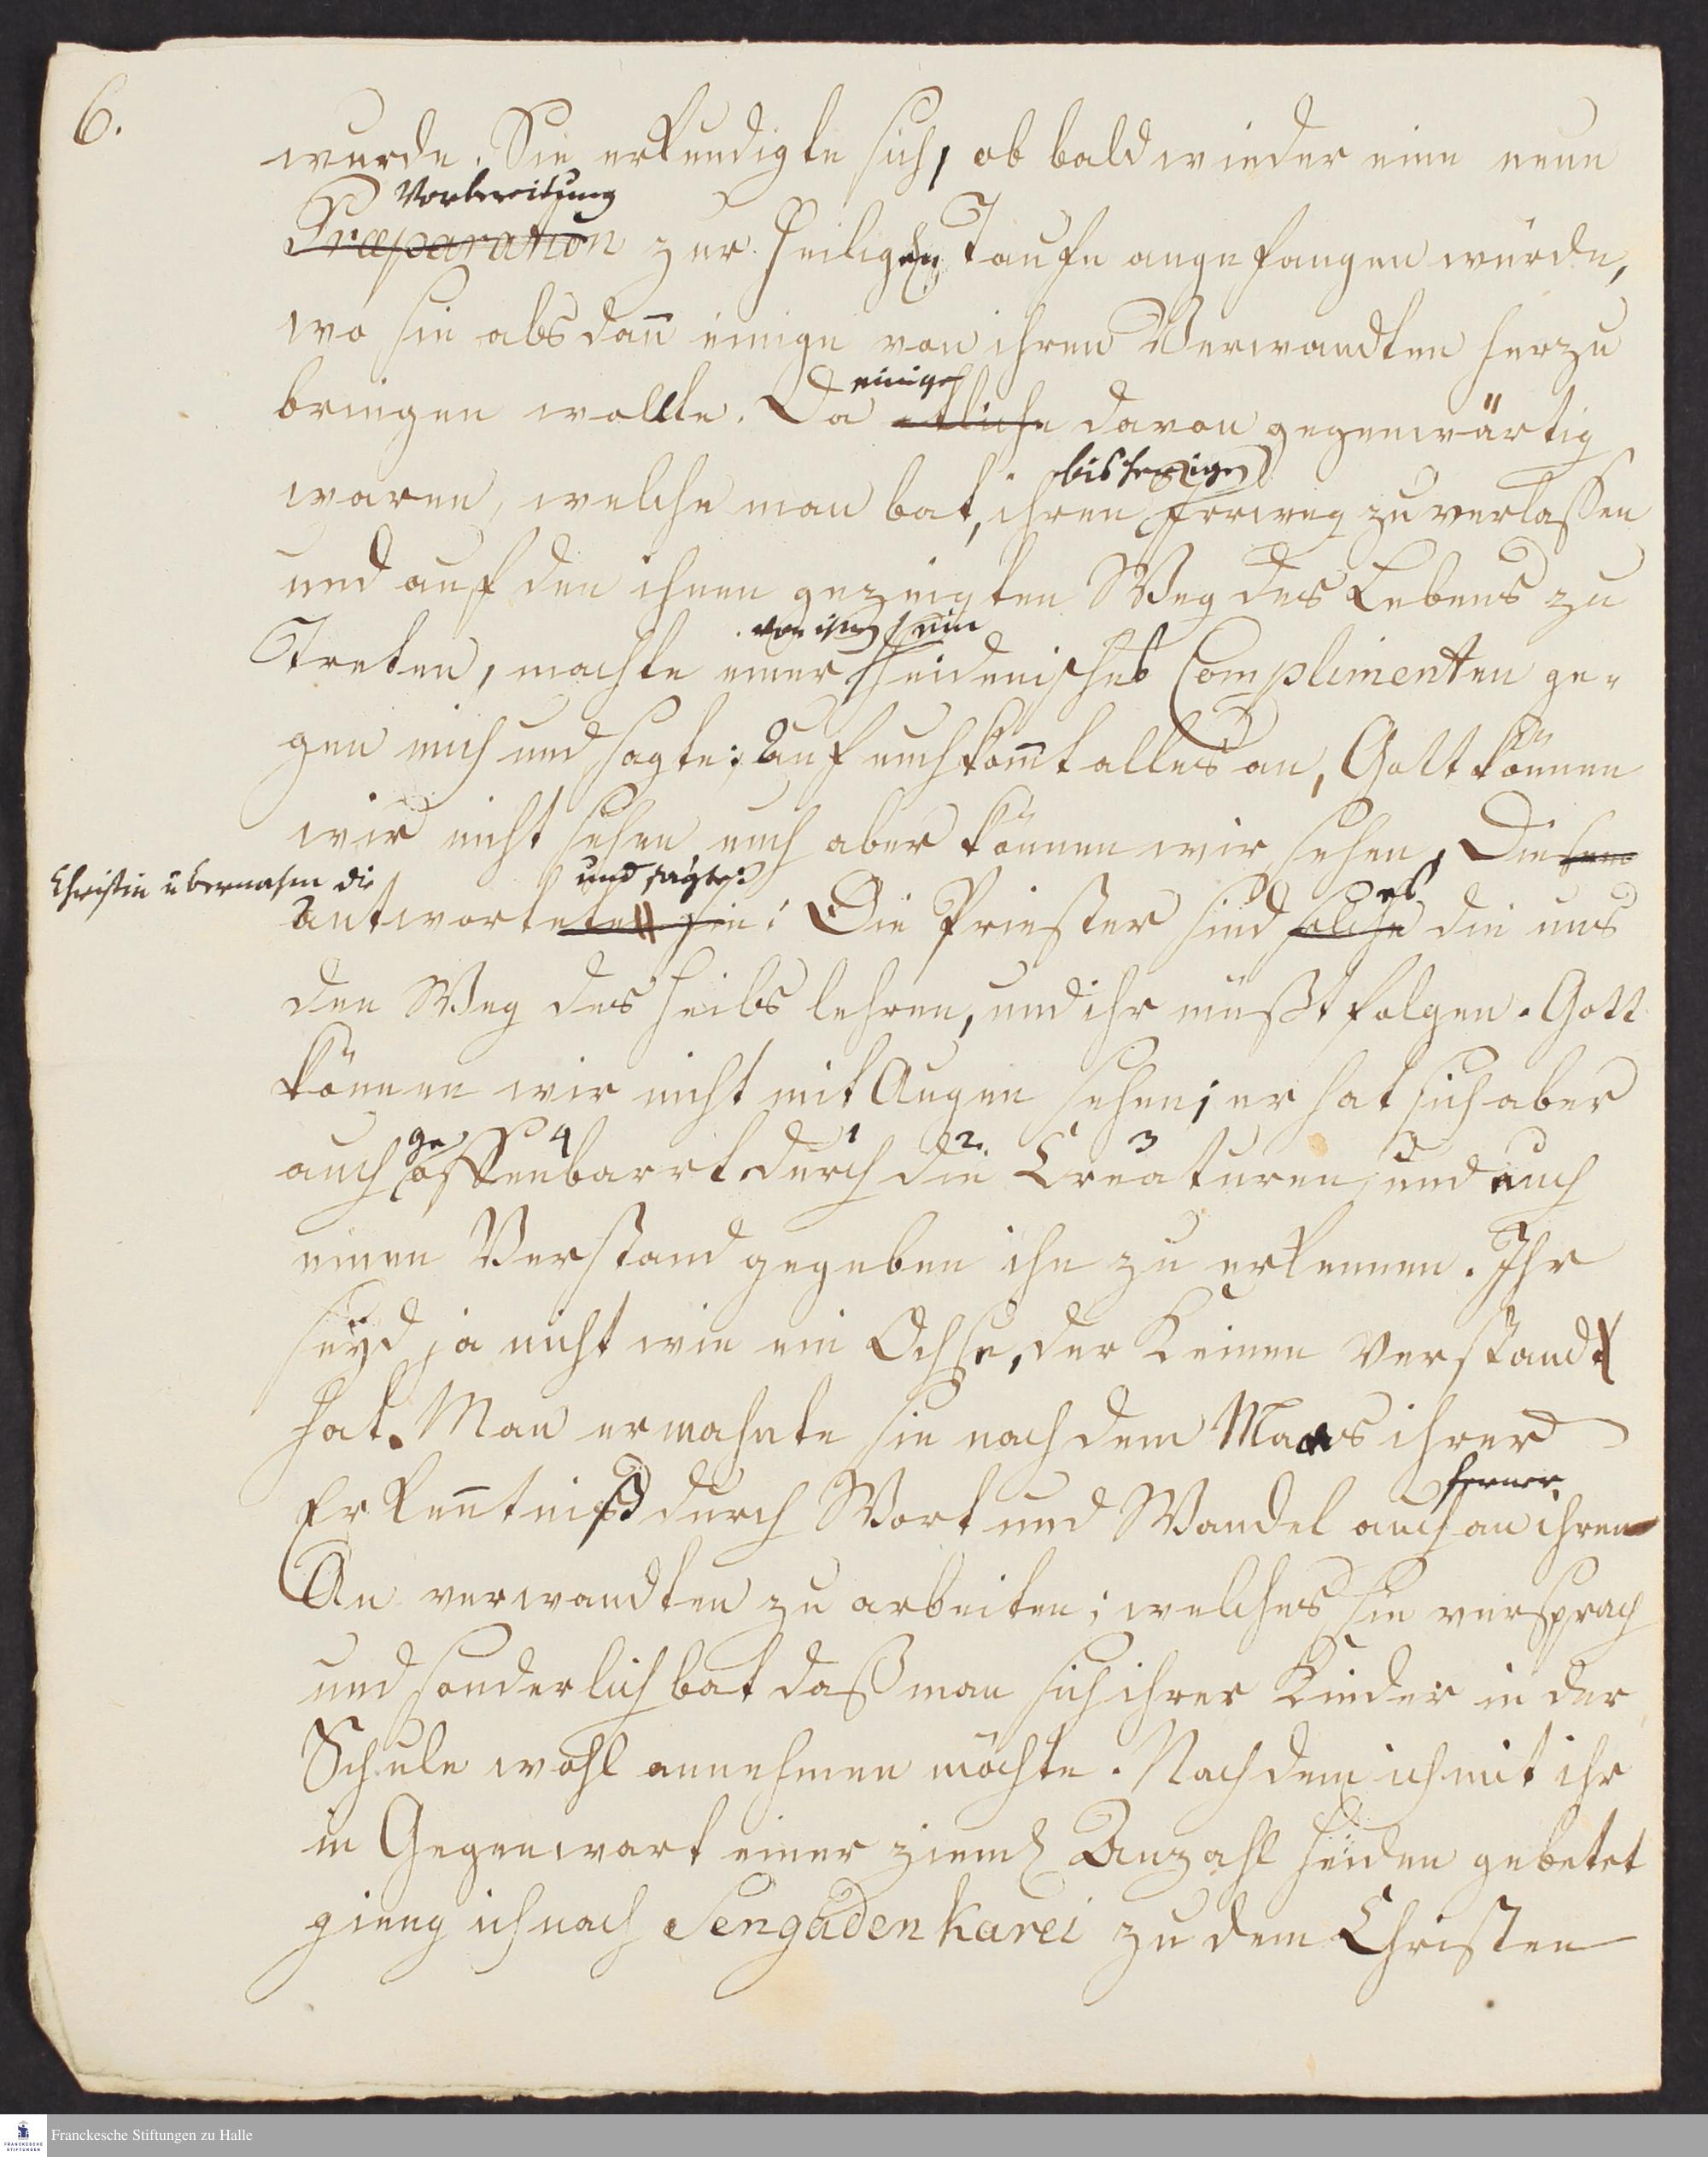 6.
wurde. Sie erkundigte sich, ob bald wieder eine neue
Vorbereitung
Præparation zur Heiligen Taufe angefangen würde,
wo sie alsdañ einige von ihren Verwandten herzu
einige
bringen wollte. Da etliche davon gegenwärtig
bisherigen
waren, welche man bat, ihren Irrweg zu verlaßen
und auf den ihnen gezeigten Weg des Lebens zu
von ihnen ein
Treten, machte einer heidenisches Complimenten ge-
gen mich und sagte: Auf euch kom̃t alles an, Gott können
wir nicht sehen euch aber können wir sehen, Diesem
Christin übernahm die und sagte: es
Antwortete sie: Die Priester sind solche die uns
den Weg des Heils lehren, und ihr müßt folgen. Gott
können wir nicht mit Augen sehen; er hat sich aber
ge 4 1 2. 3
auch offenbarrt durch die Creaturen, und euch
einen Verstand gegeben ihn zu erkennen. Ihr
seÿd ja nicht wie ein Ochse, der Keinen Verstandt
hat. Man ermahnte sie nach dem Maas ihrer
ferner
Erkeñtniß durch Wort und Wandel auch an ihren
Anverwandten zu arbeiten; welches sie versprach
und sonderlich bat daß man sich ihrer Kinder in der
Schule wohl annehmen möchte. Nachdem ich mit ihr
in Gegenwart einer zieml Anzahl Heiden gebetet
gieng ich nach Sengadenkarei zu dem Christen
Franckesche Stiftungen zu Halle